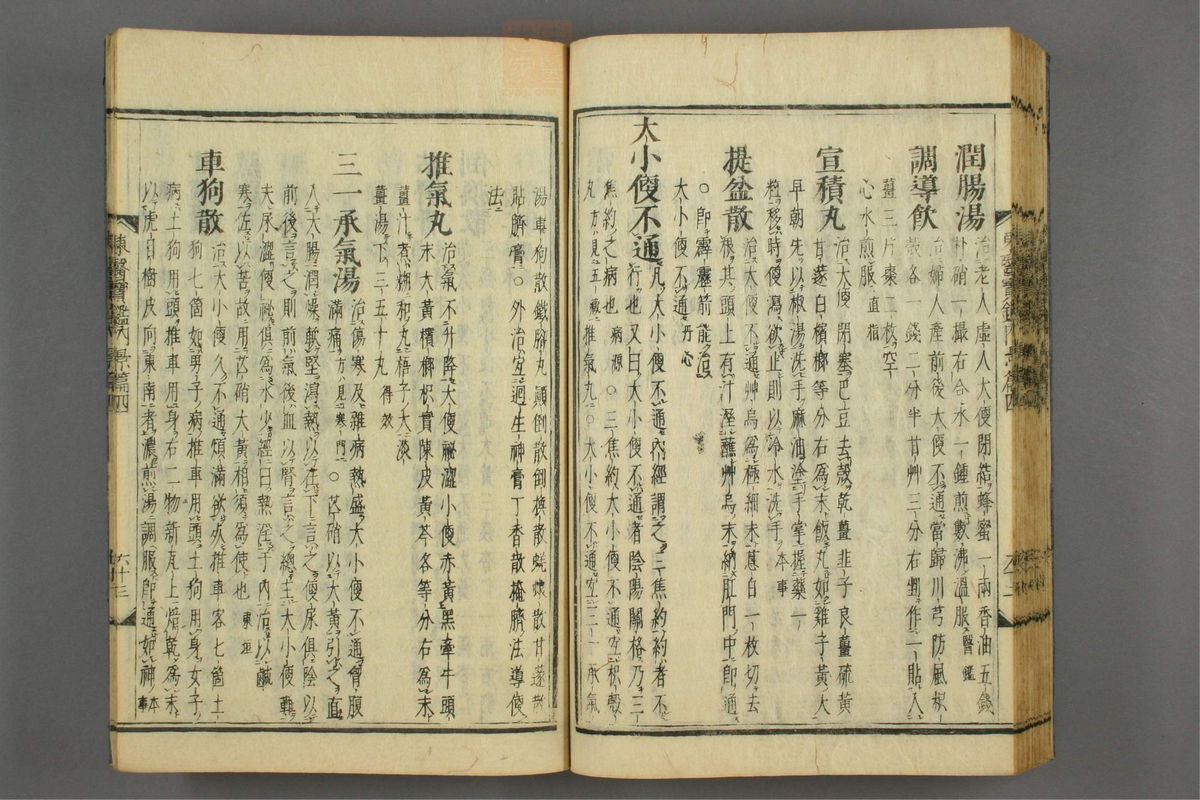 潤腸湯 治老人虛人大便閉結蜂蜜一兩香油五錢
朴硝一撮右合水一鍾煎數沸溫服 醫鑑
調導飮 治婦人産前後大便不通當歸川芎防風枳
殼各一錢二分半甘艸三分右剉作一貼入
薑三片棗二枚空
心水煎服 直指
宣積丸 治大便閉塞巴豆去殼乾薑韭子良薑硫黃
甘遂白檳榔等分右爲末飯丸如雞子黃大
早朝先以椒湯洗手麻油塗手掌握藥一
粒移時便瀉欲止則以冷水洗手 本事
提盆散 治大便不通艸烏爲極細末葱白一枚切去
根其頭上有汁濕蘸艸烏末納肛門中卽通
○卽霹靂箭能治
大小便不通 丹心
大小便不通 凡大小便不通內經謂之三焦約約者不
行也又曰大小便不通者陰陽關格乃三
焦約之病也 病源 ○三焦約大小便不通宜枳殼
丸 方見五藏 推氣丸○大小便不通宜三一承氣
湯車狗散鐵脚丸顚倒散倒換散蜣蜋散甘遂散
貼臍膏○外治宜廻生神膏丁香散掩臍法導便
法
推氣丸 治氣不升降大便祕澀小便赤黃黑牽牛頭
末大黃檳榔枳實陳皮黃芩各等分右爲末
薑汁煮糊和丸梧子大淡
薑湯下三五十丸 得效
三一承氣湯 治傷寒及雜病熱盛大小便不通脅腹
滿痛 方見寒門 ○芒硝以大黃引之直
入大腸潤燥軟堅瀉熱以行在下言之便尿俱陰以
前後言之則前氣後血以腎言之總主大小便難
夫尿澀便祕俱爲水少經曰熱淫于內治以鹹
寒佐以苦故用芒硝大黃相須爲使也 東垣
車狗散 治大小便久不通煩滿欲死推車客七箇土
狗七箇如男子病推車用頭土狗用身女子
病土狗用頭推車用身右二物新瓦上焙乾爲末
以虎目樹皮向東南者濃煎湯調服卽通如神 本事
東醫寶鑑內景篇四
六十三